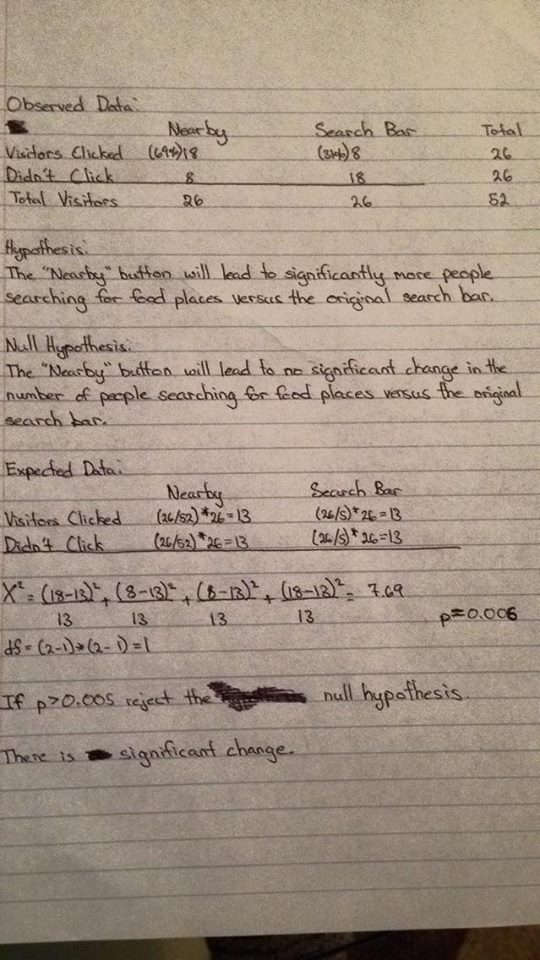 Observed Data:
Nearby Search Bar Total
Visitors Clicked (69%)18 (31%)8 26
Didn't Click 8 18 26
Total Visitors 26 26 52
Hypothesis:
The "Nearby" button will lead to significantly more people
searching for food places versus the original search bar.
Null Hypothesis:
The "Nearby" button will lead to no significant change in the
number of people searching for food places versus the original
search bar.
Expected Data:
Nearby Search Bar
Visitors Clicked (26/52)*26=13 (26/5)*26=13
Didn't Click (26/52)*26=13 (26/5)*26=13
X²= (18-13)² + (8-13)² + (8-13)² + (18-13)² = 7.69
13 13 13 13 p=0.006
df = (2-1)*(2-1)=1
If p>0.005 reject the null hypothesis.
There is significant change.